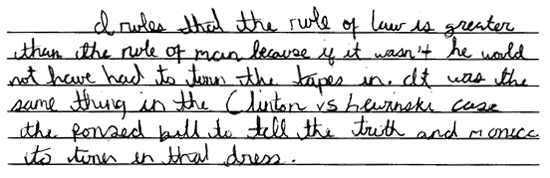 I rules that the rule of law is greater
than the rule of man because if it wasn't he would
not have had to turn the tapes in. It was the
same thing in the Clinton vs Lewinski case
the forsed bill to tell the truth and monica
to turn in that dress.